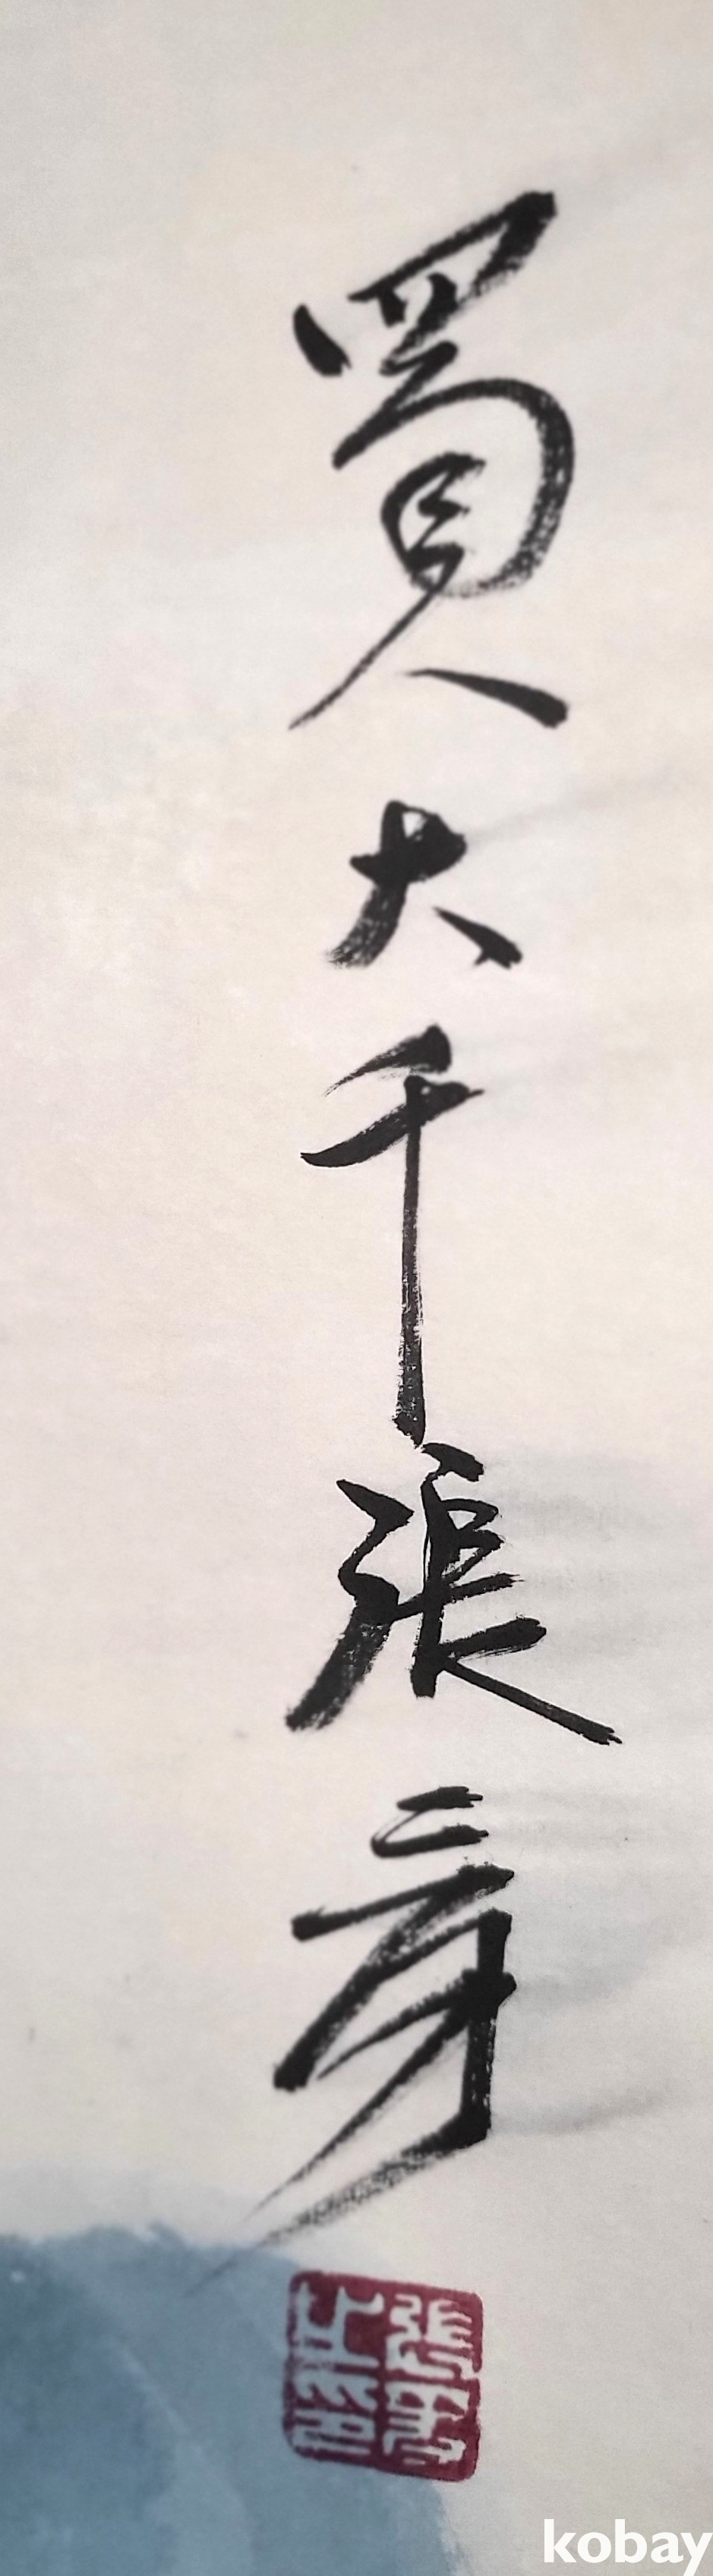 蜀人大千張爰
張爰
之印
kobay